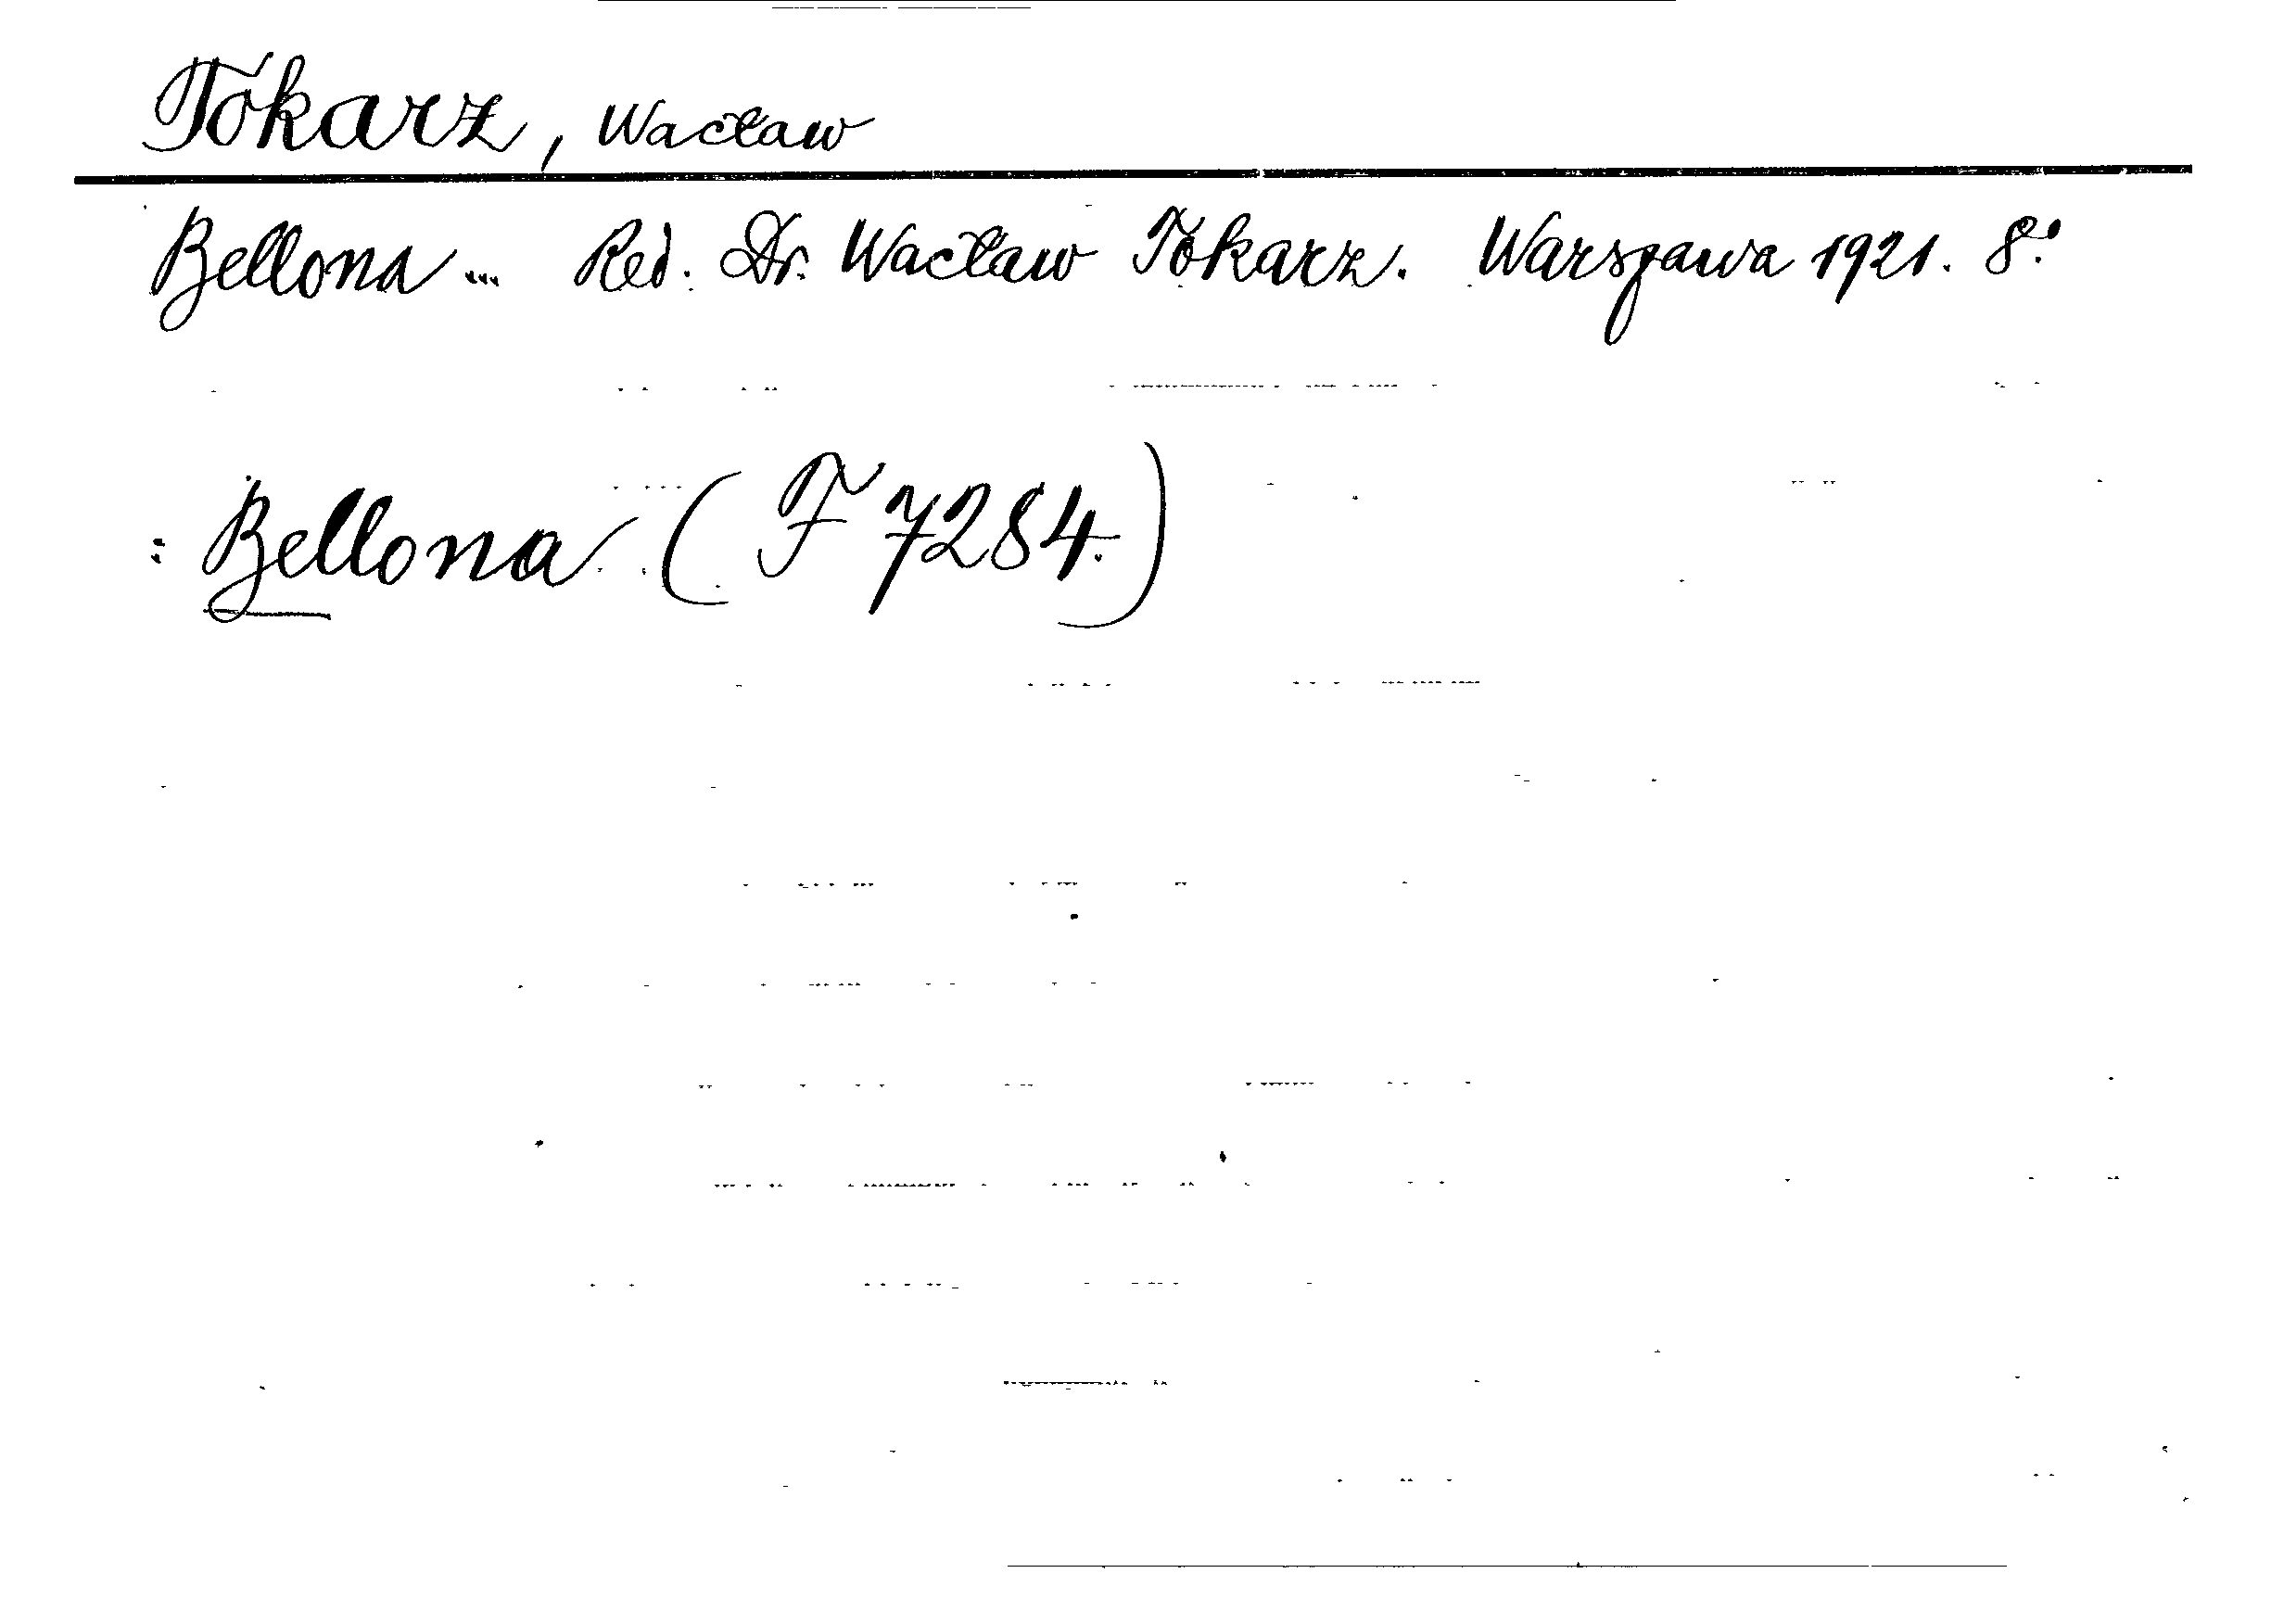 Tokarz, Wacław
Bellona ... Red. Dr. Wacław Tokarz. Warszawa 1921. 8º.
: Bellona (F 7284.)